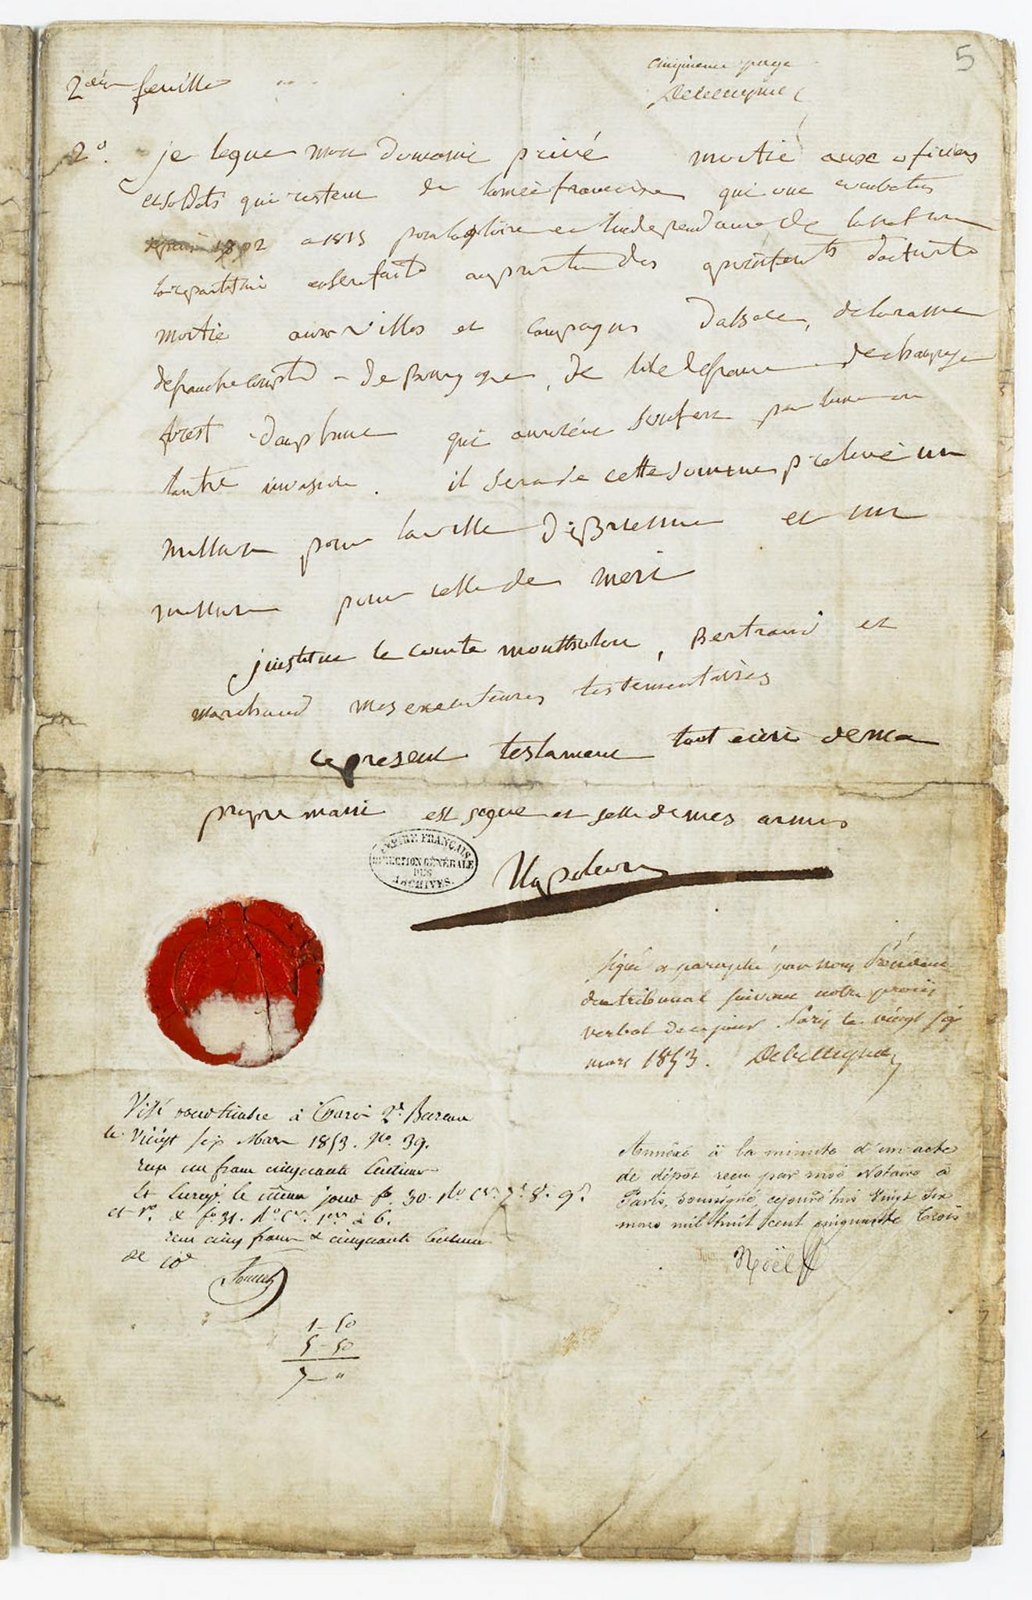 5
cinquieme page
Debelleyme
2em feuille
2°. je legue mon domaine privé moitié aux oficiers
et soldats qui restent de larmée francaise qui ont combatus
depuis 1792 a 1815 pour la gloire et lindependance de la nation
la repartition en sera faite au prorata des apointements dactivité
moitié aux villes et campagnes dalsace, de loraine
de franche compté - de Bourgogne, de lile de france de champagne
forest dauphiné qui auroient soufert par lune ou
lautre invasion. il sera de cette somme prelevé un
million pour la ville de Brienne et un
million pour celle de meri
jinstitue le comte montholon, Bertrand et
marchand mes executeurs testementaires
ce present testament tout ecrit de ma
propre main est signé et sellé de mes armes
EMPIRE FRANÇAIS
DIRECTION GÉNÉRALE
DES
ARCHIVES.
Napoleon
Signé et paraphé par nous Président
du tribunal suivant notre procès
verbal de ce jour. Paris le vingt six
mars 1853. Debelleyme
Visé pour timbre à Paris 2e Bureau
le vingt six Mars 1853. No. 39.
reçu un franc cinquante centimes
Et Enregé. le même jour fo. 30. Ro. Cs. 7. 8. 9.
et Vo. & fo 31. Ro. Cs. 1er à 6.
reçu cinq francs & cinquante centimes
de 10e
Annexé à la minute d'un acte
de dépôt reçu par moi Notaire à
Paris, soussigné, cejourd'hui Vingt Six
mars mil huit cent cinquante trois
Noël
1-50
5-50
7-"